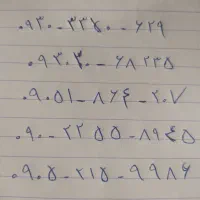 ۰۹۳۰-۳۳۷۵۰-۶۲۹
۰۹۳۰۳۰-۶۸۲۳۵
۰۹۰۵۱-۸۶۴-۲۰۷
۰۹۰۰-۲۲۵۵-۸۹۴۵
۰۹۰۵-۲۱۵-۹۹۸۶